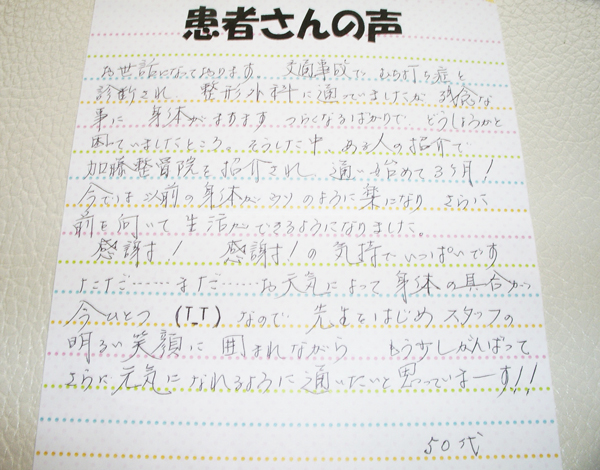 患者さんの声
お世話になっております。 交通事故で むち打ち症と
診断され、 整形外科に通っていましたが 残念な
事に 身体がますます つらくなるばかりで、どうしようかと
困っていましたところ。そうした中、ある人の紹介で
加藤整骨院を紹介され、通い始めて3ヶ月!
今では以前の身体がウソのように楽になり さらに
前を向いて 生活ができるようになりました。
感謝す! 感謝す!の 気持でいっぱいです
ただ……まだ……お天気によって 身体の具合が
今ひとつ (T_T) なので 先生をはじめ スタッフの
明るい笑顔に 囲まれながら もう少しがんばって
さらに元気になれるように通いたいと思っていまーす!!
50代